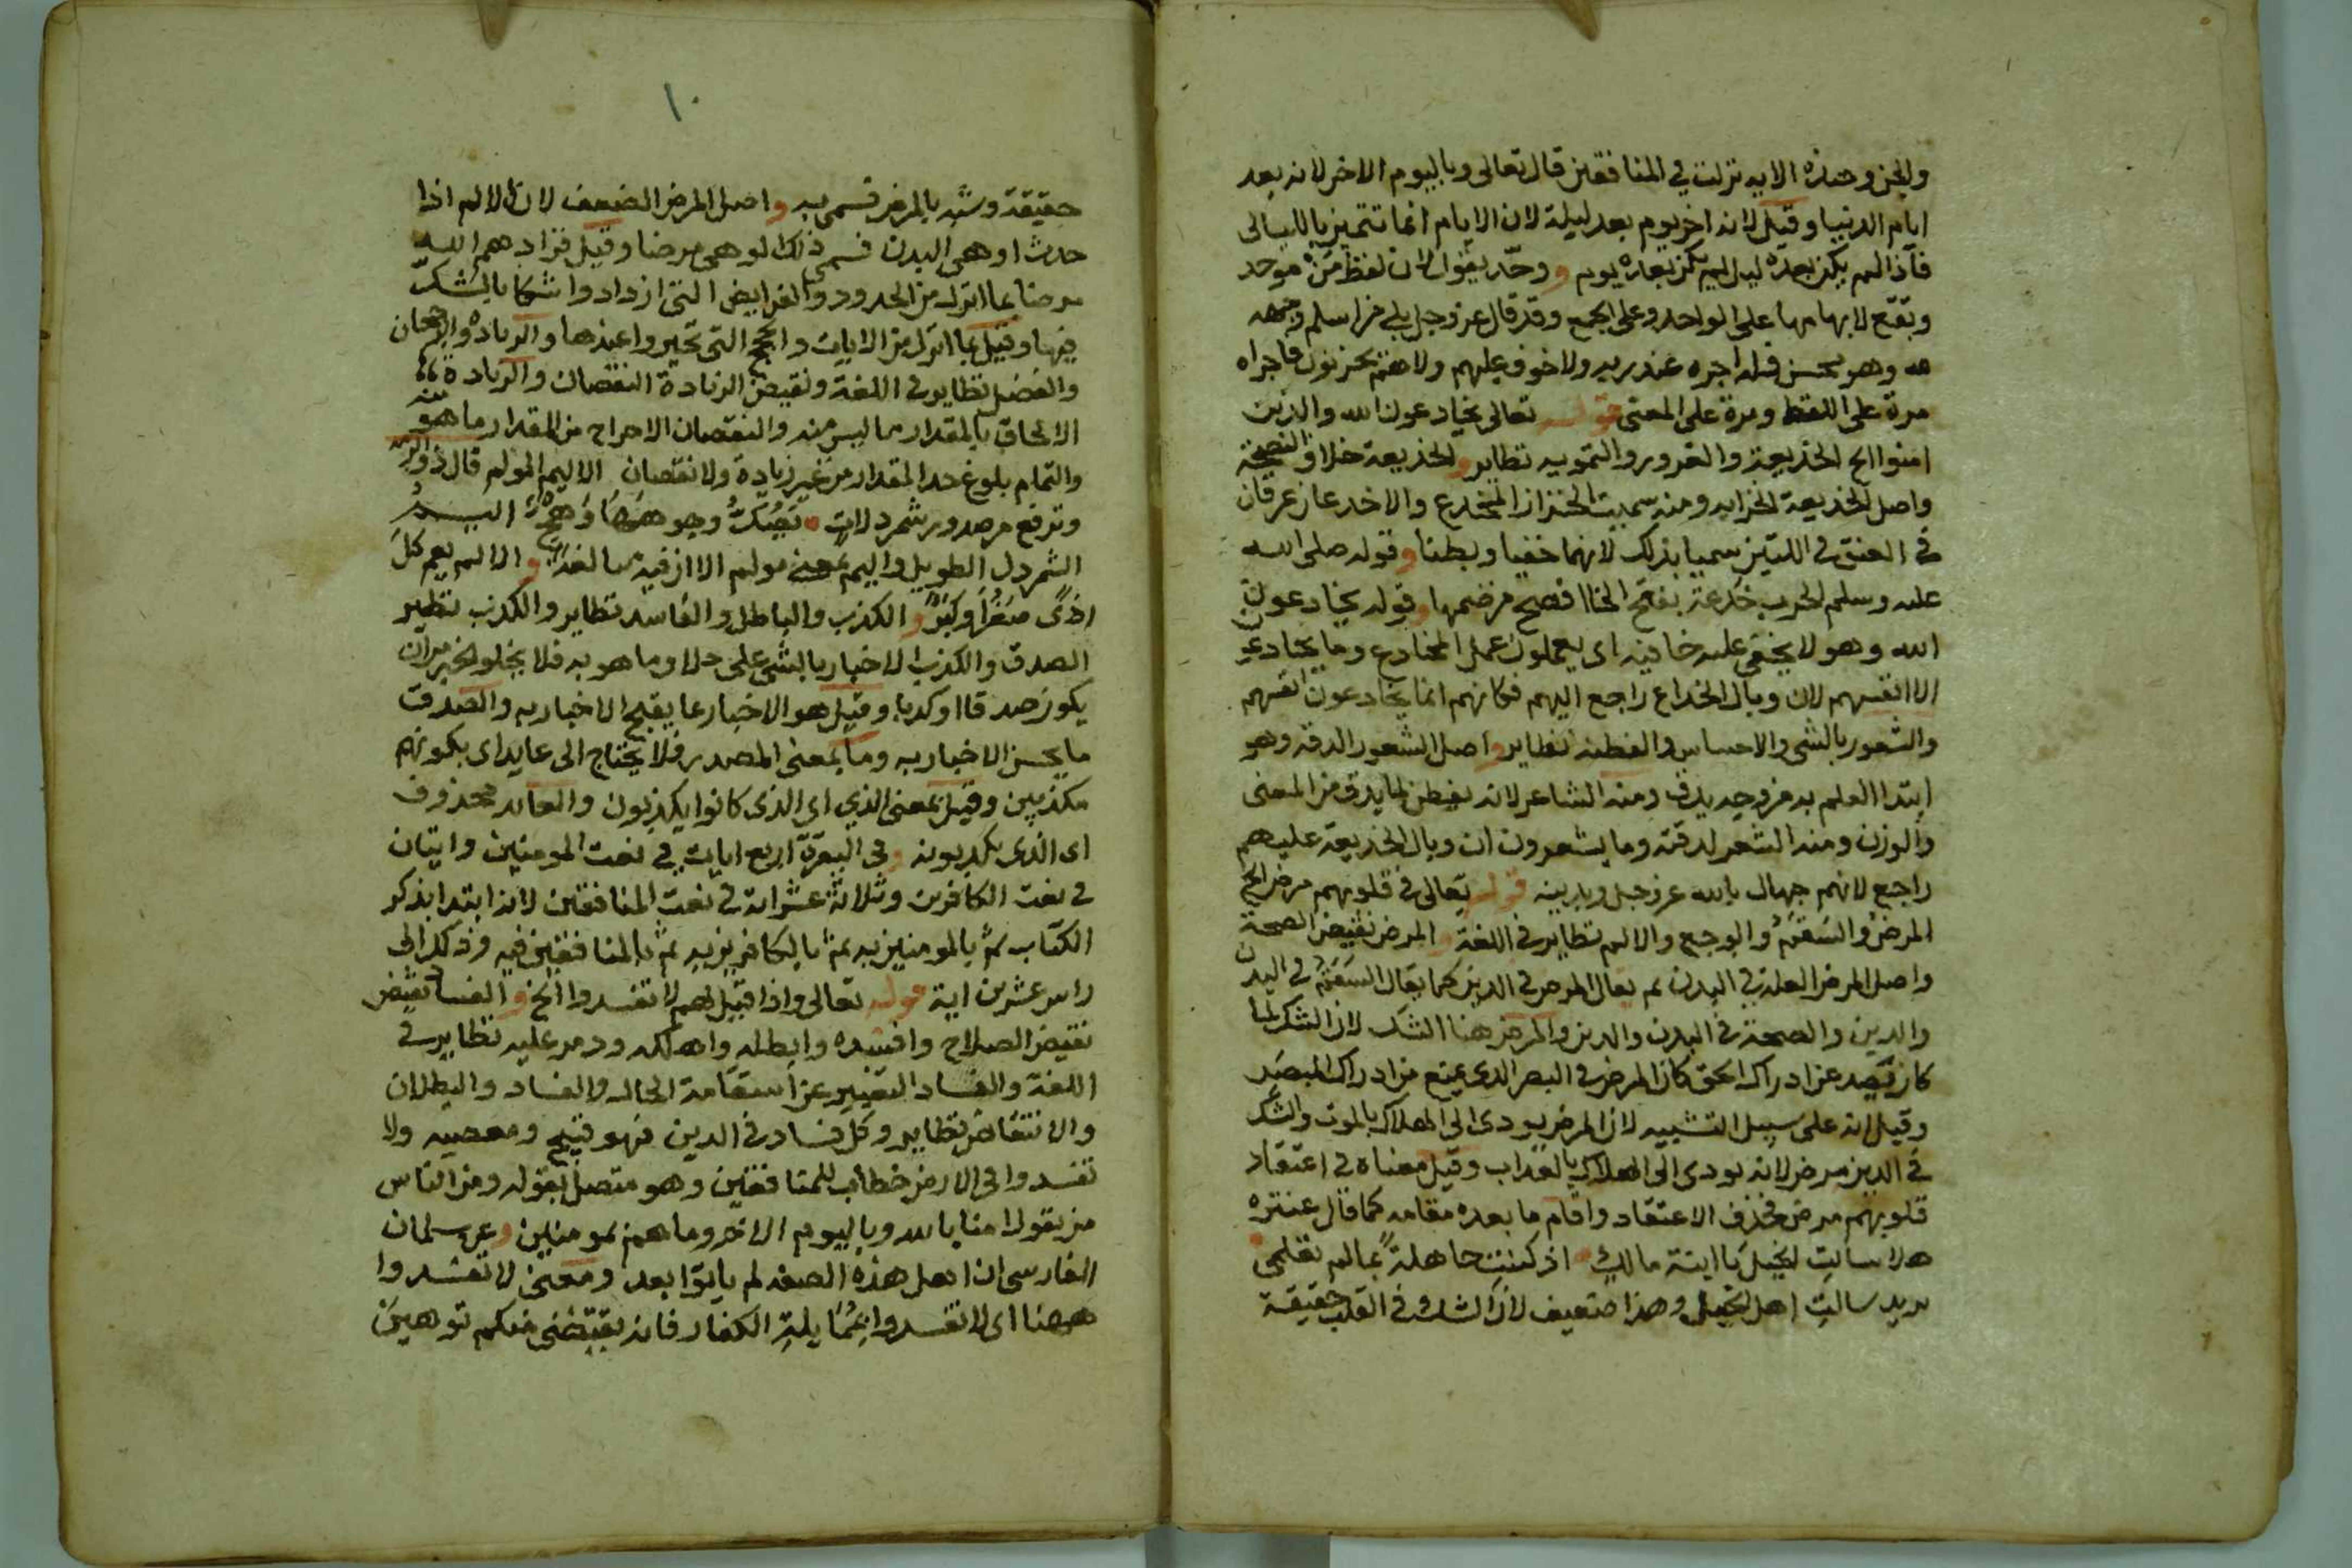 والجن وهذه الايه نزلت في المنافقين قال تعالى وباليوم الاخر لانه بعد
ايام الدنيا وقيل لانه اخر يوم بعد ليلة لان الايام انما تتميز بالليالى
فاذا لم يكن بعده ليل لم يكن بعده يوم ووحّد يقول لان لفظ مَنْ موحد
وتقع لابهامها على الواحد وعلى الجمع وقد قال عز وجل بلى من اسلم وجهه
لله وهو محسن فله اجره عند ربه ولا خوف عليهم ولا هم يحزنون فاجراه
مرة على اللفظ ومرة على المعنى قوله تعالى يخادعون الله والذين
امنوا الخ الخديعة والغرور والتمويه نظاير والخديعة خلاف النصيحة
واصل الخديعة الخزايه ومنه سميت الخزانة المخدع والاخدعان عرقان
في العنق اللتين سميا بذلك لانهما خفيا وبطنا وقوله صلى الله
عليه وسلم الحرب خَدعة بفتح الخا افصح من ضمها وقوله يخادعون
الله وهو لا يخفى عليه خافيه اى يعملون عمل المخادع وما يخادعون
الا انفسهم لان وبال الخداع راجع اليهم فكانهم انما يخادعون انفسهم
والشعور بالشى والاحساس والفطنه نظاير واصل الشعور الدقه وهو
ابتدا العلم به من وجه يدق ومنه الشاعر لانه يفطن لما يدق من المعنى
والوزن ومنه الشعر لدقته وما يشعرون ان وبال الخديعة عليهم
راجع لانهم جهال بالله عز وجل وبدينه قوله تعالى في قلوبهم مرض الخ
المرض والسَقَمُ والوجع والالم نظاير في اللغة والمرض نقيض الصحة
واصل المرض العلة في البدن ثم يقال المرض في الدين كما يقال السَقَمُ في البدن
والدين والصحة في البدن والدين والمرض هنا الشك لان الشك لما
كان يصد عن ادراك الحق كان المرض في البصر الذى يمنع من ادراك المبصر
وقيل انه على سبيل التشبيه لان المرض يودى الى الهلاك بالموت والشك
في الدين مرض لانه يودى الى الهلاك بالعذاب وقيل معناه في اعتقاد
قلوبهم مرض فحذف الاعتقاد واقام ما بعده مقامه كما قال عنتره
هلا سالتِ الخيلَ يا ابنة مالكٍ اذ كنتِ جاهلةً بما لم تعلمى
يريد سالتِ اهل الخيل وهذا ضعيف لان الشك في القلب حقيقة
١٠
حقيقة وشبه بالمرض فسمى به واصل المرض الضعف لان الالم اذا
حدث اوهى البدن فسمى ذلك الوهى مرضا وقيل فزادهم الله
مرضا بما انزل من الحدود والفرايض التى ازدادوا شكا بالشك
فيها وقيل بما انزل من الايات والحجج التى تحيروا عندها والزيادة والرجحان
والفضل نظاير في اللغة ونقيض الزيادة النقصان والزيادة
الالحاق بالمقدار ما ليس منه والنقصان الاخراج من المقدار ما هو منه
والتمام بلوغ حد المقدار من غير زيادة ولا نقصان الاليم المولم قال ذو الرمه
وترفع من صدور شمردلات يَصُكُّ وجوهها وَهَجٌ اليـم
الشمردل الطويل واليم بمعنى مولم الا ان فيه مبالغة والالم يعم كل
اذى صَغُرَ او كَبُر والكذب والباطل والفاسد نظاير والكذب نظير
الصدق والكذب الاخبار بالشى على خلاف ما هو به فلا يخلو الخبر من ان
يكون صدقا او كذبا وقيل هو الاخبار عما يقبح الاخبار به والصدق
ما يحسن الاخبار به وما بمعنى المصدر فلا يحتاج الى عايد اى بكونهم
مكذبين وقيل بمعنى الذي اى الذى كانوا يكذبون والعايد محذوف
اى الذى يكذبونه وفى البقرة اربع ايات في نعت المومنين وايتان
في نعت الكافرين وثلاثة عشر اية في نعت المنافقين لانه ابتدا بذكر
الكتاب ثم بالمومنين به ثم بالكافرين به ثم بالمنافقين فيه وذلك الى
راس عشرين اية قوله تعالى واذا قيل لهم لا تفسدوا الخ والفساد نقيض
نقيض الصلاح وافسده وابطله واهلكه ودمر عليه نظاير في
اللغة والفساد التغيير عن استقامة الحال والفساد والبطلان
والانتقاض نظاير وكل فساد في الدين فهو قبيح ومعصيه ولا
تفسدوا فى الارض خطاب للمنافقين وهو متصل بقوله ومن الناس
من يقول امنا بالله وباليوم الاخر وما هم بمومنين وعن سلمان
الفارسى ان اهل هذه الصفه لم ياتوا بعد ومعنى لا تفسدوا
ههنا اى لا تفسدوا بمُمَايلة الكفار فانه يقتضى منكم توهين